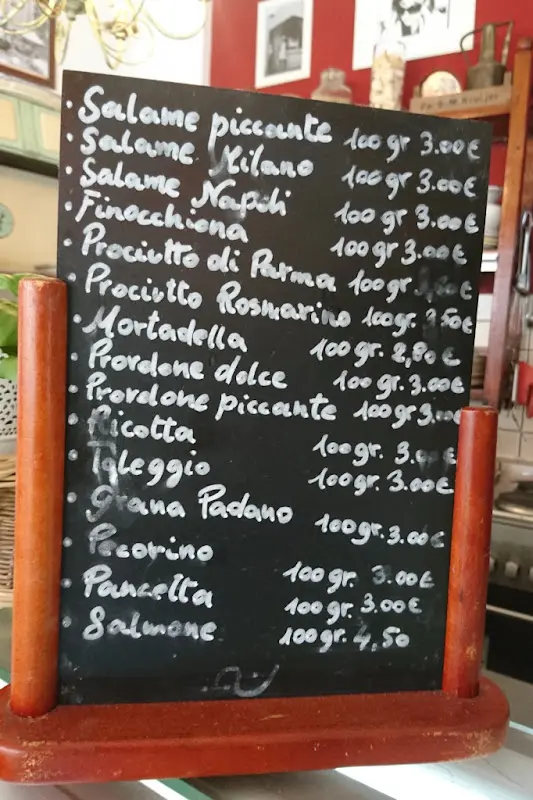 · Salame piccante 100 gr 3.00€
· Salame Milano 100 gr 3.00€
· Salame Napoli 100 gr 3.00€
· Finocchiona 100 gr 3.00€
· Prociutto di Parma 100 gr
· Prociutto Rosmarino 100 gr. 3.50€
· Mortadella 100 gr. 2,80€
· Provdone dolce 100 gr. 3.00€
· Provdone piccante 100 gr 3.00€
· Ricotta 100 gr. 3.00€
· Taleggio 100 gr. 3.00€
· Grana Padano 100 gr. 3.00€
· Pecorino 100 gr. 3.00€
· Pancetta 100 gr. 3.00€
· Salmone 100 gr. 4,50